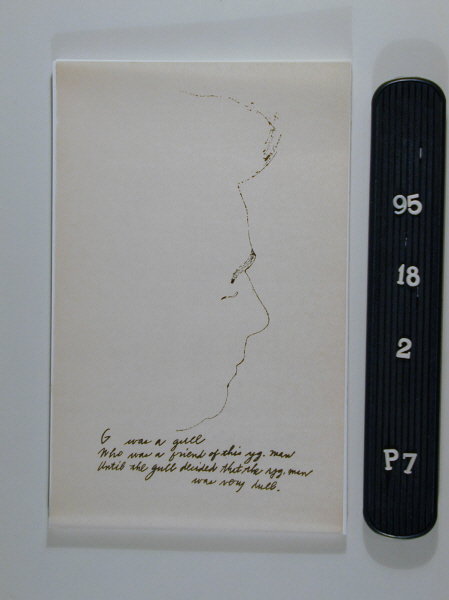 G was a gull
Who was a friend of this yg. man
Until the gull decided that the yg. man
was very dull.
95
18
2
P7